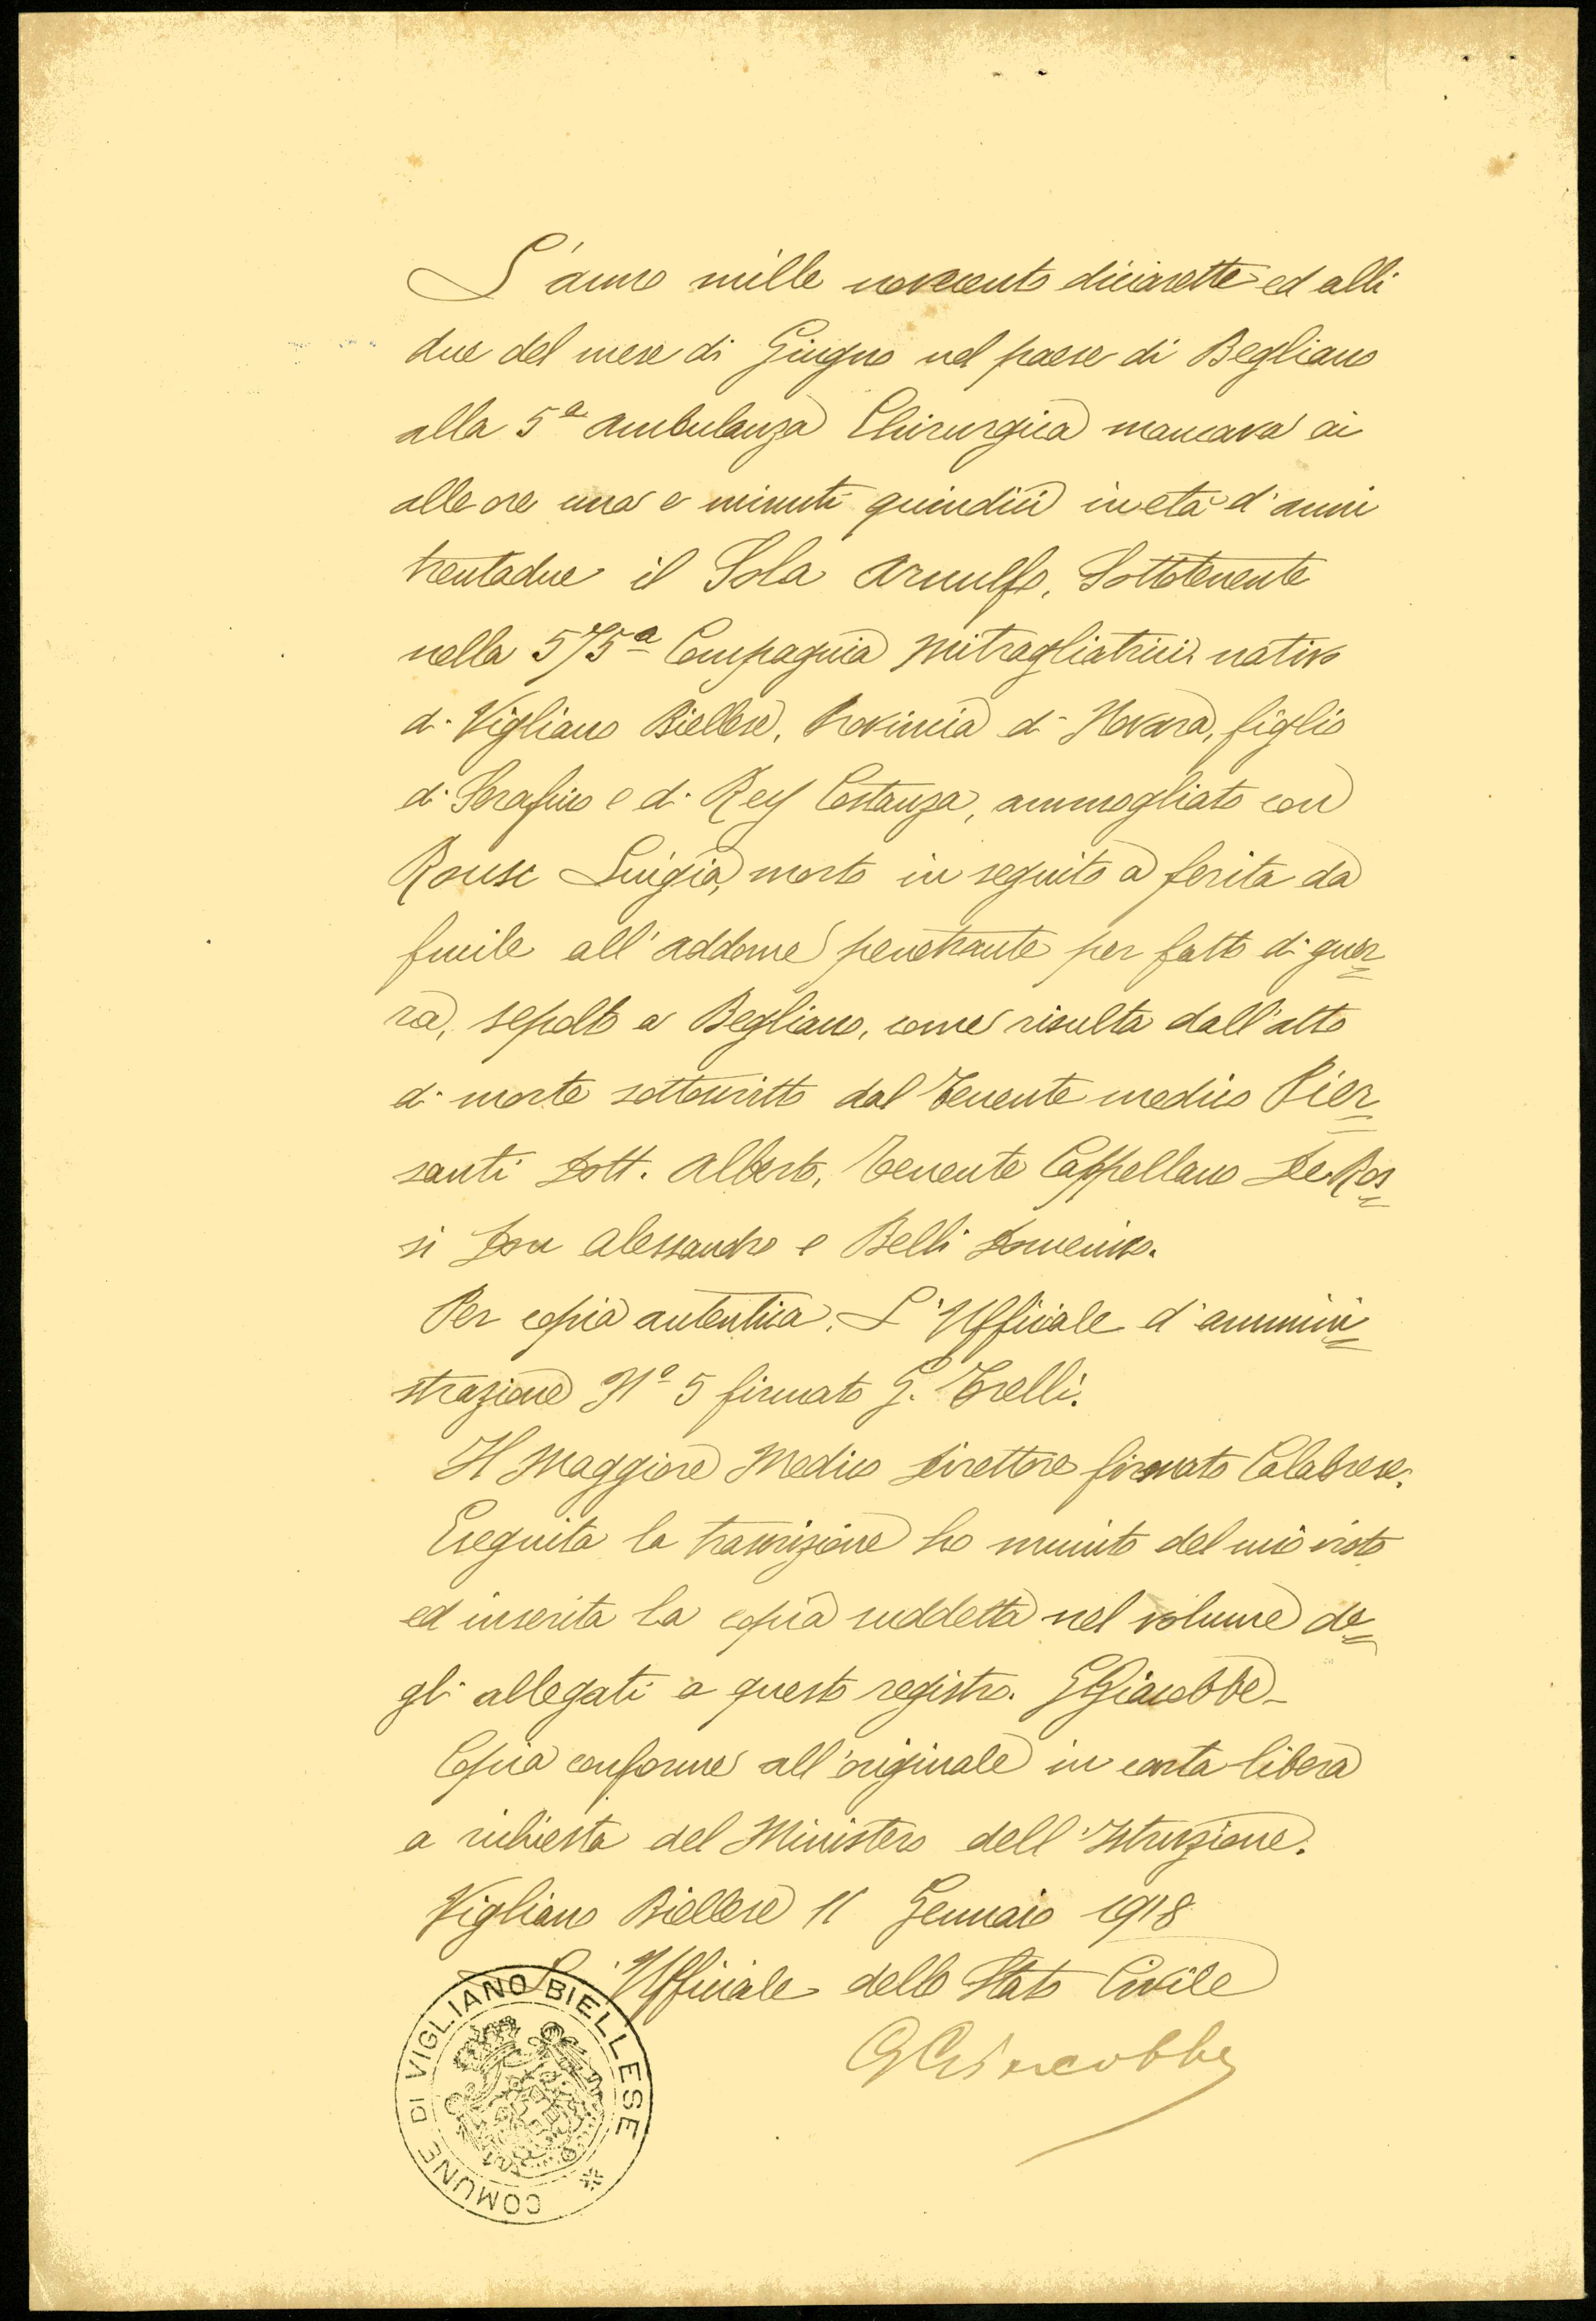 L'anno mille novecento diciasette ed alli
due del mese di Giugno nel paese di Begliano
alla 5ª ambulanza Chirurgica mancava ai
alle ore una e minuti quindici in età d'anni
trentadue il Sola Arnulfo, Sottotenente
nella 575ª Compagnia Mitragliatrici nativo
di Vigliano Biellese, Provincia di Novara, figlio
di Serafino e di Rey Costanza, ammogliato con
Luigia, morto in seguito a ferita da
fucile all'addome penetrante per fatto di guer=
ra, sepolto a Begliano, come risulta dall'atto
di morte sottoscritto dal Tenente medico Pier=
santi Dott. Alberto, Tenente Cappellano De Ros=
si Don Alessandro e Belli Domenico.
Per copia autentica. L'Ufficiale d'ammini=
strazione Nº 5 firmato G. Torelli.
Il Maggiore Medico Direttore firmato Calabrese.
Eseguita la trascrizione ho munito del mio visto
ed inserita la copia suddetta nel volume de=
gli allegati a questo registro. G Giacobbe_
Copia conforme all'originale in carta libera
a richiesta del Ministero dell'Istruzione.
Vigliano Biellese 11 Gennaio 1918
L'Ufficiale dello Stato Civile
G Giacobbe
COMUNE DI VIGLIANO BIELLESE